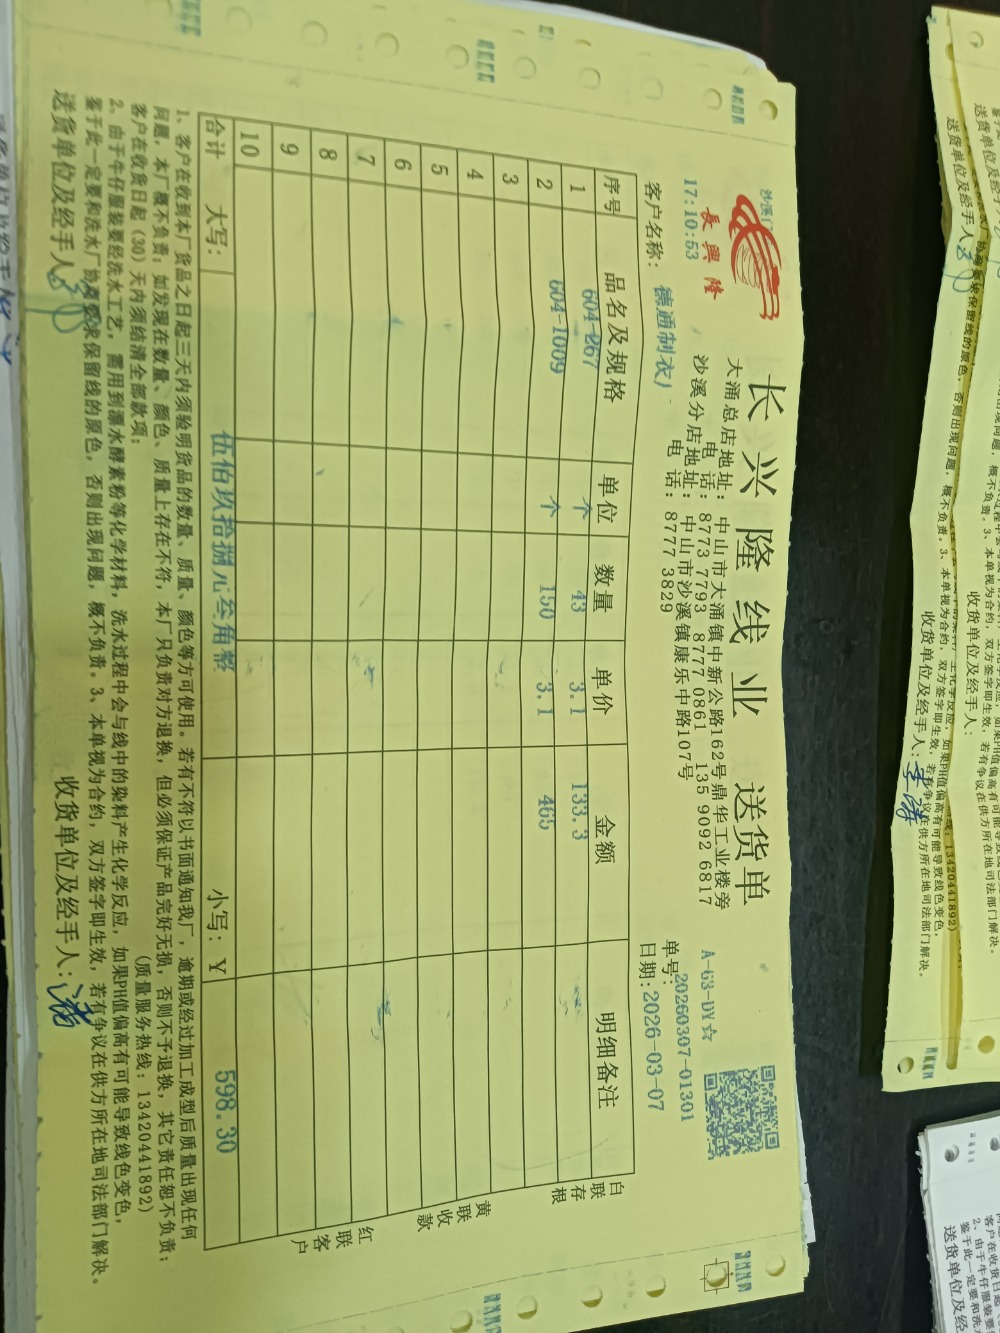 沙溪门
長興隆
17:10:53
长兴隆线业 送货单
大涌总店地址: 中山市大涌镇中新公路162号鼎华工业楼旁
电 话: 8773 7793 8777 0861 135 9092 6817
沙溪分店地址: 中山市沙溪镇康乐中路107号
电 话: 8777 3829
A-63-DY☆
单号: 20260307-01301
客户名称: 德通制衣厂
日期: 2026-03-07
序号 品名及规格 单位 数量 单价 金额 明细备注
1 604-267 个 43 3.1 133.3
2 604-1009 个 150 3.1 465
3
4
5
6
7
8
9
10
合计 大写: 伍佰玖拾捌元叁角整 小写: ¥ 598.30
白联存根
黄联收款
红联客户
1、客户在收到本厂货品之日起三天内须验明货品的数量、质量、颜色等方可使用。若有不符以书面通知我厂,逾期或经过加工成型后质量出现任何
问题,本厂概不负责;如发现在数量、颜色、质量上存在不符,本厂只负责对方退换,但必须保证产品完好无损,否则不予退换,其它责任恕不负责;
客户在收货日起(30)天内须结清全部款项; (质量服务热线: 13420441892)
2、由于牛仔服装要经洗水工艺,需用到漂水酵素粉等化学材料,洗水过程中会与线中的染料产生化学反应,如果PH值偏高有可能导致线色变色,
鉴于此一定要和洗水厂协商要求保留线的原色,否则出现问题,概不负责。3、本单视为合约,双方签字即生效,若有争议在供方所在地司法部门解决。
送货单位及经手人: 收货单位及经手人:
送货单位及经手人
收货单位及经手人:
收货单位及经手人: